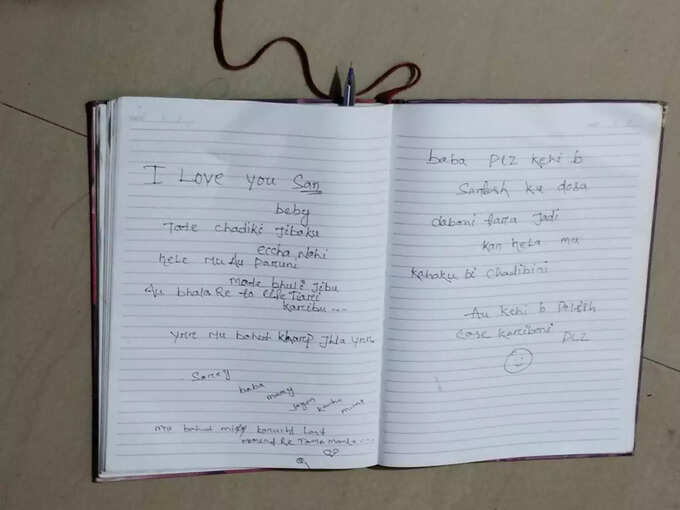 I Love you San
beby
Tote chadiki Jibaku
eccha nahi
hele mu Au paruni
mote bhuli Jibu
Au bhala Re to life Tiari
karibu ---
yrr mu bahut kharap Jhla yrr
Sorry
baba
maay
mu bahut miss karuchi last
moment Re Tama manku ---
baba PLZ kehi b
Santosh ku dosa
daboni tara Jadi
kan hela mu
kahaku bi chadibini
Au kehi b Polish
case kariboni PLZ